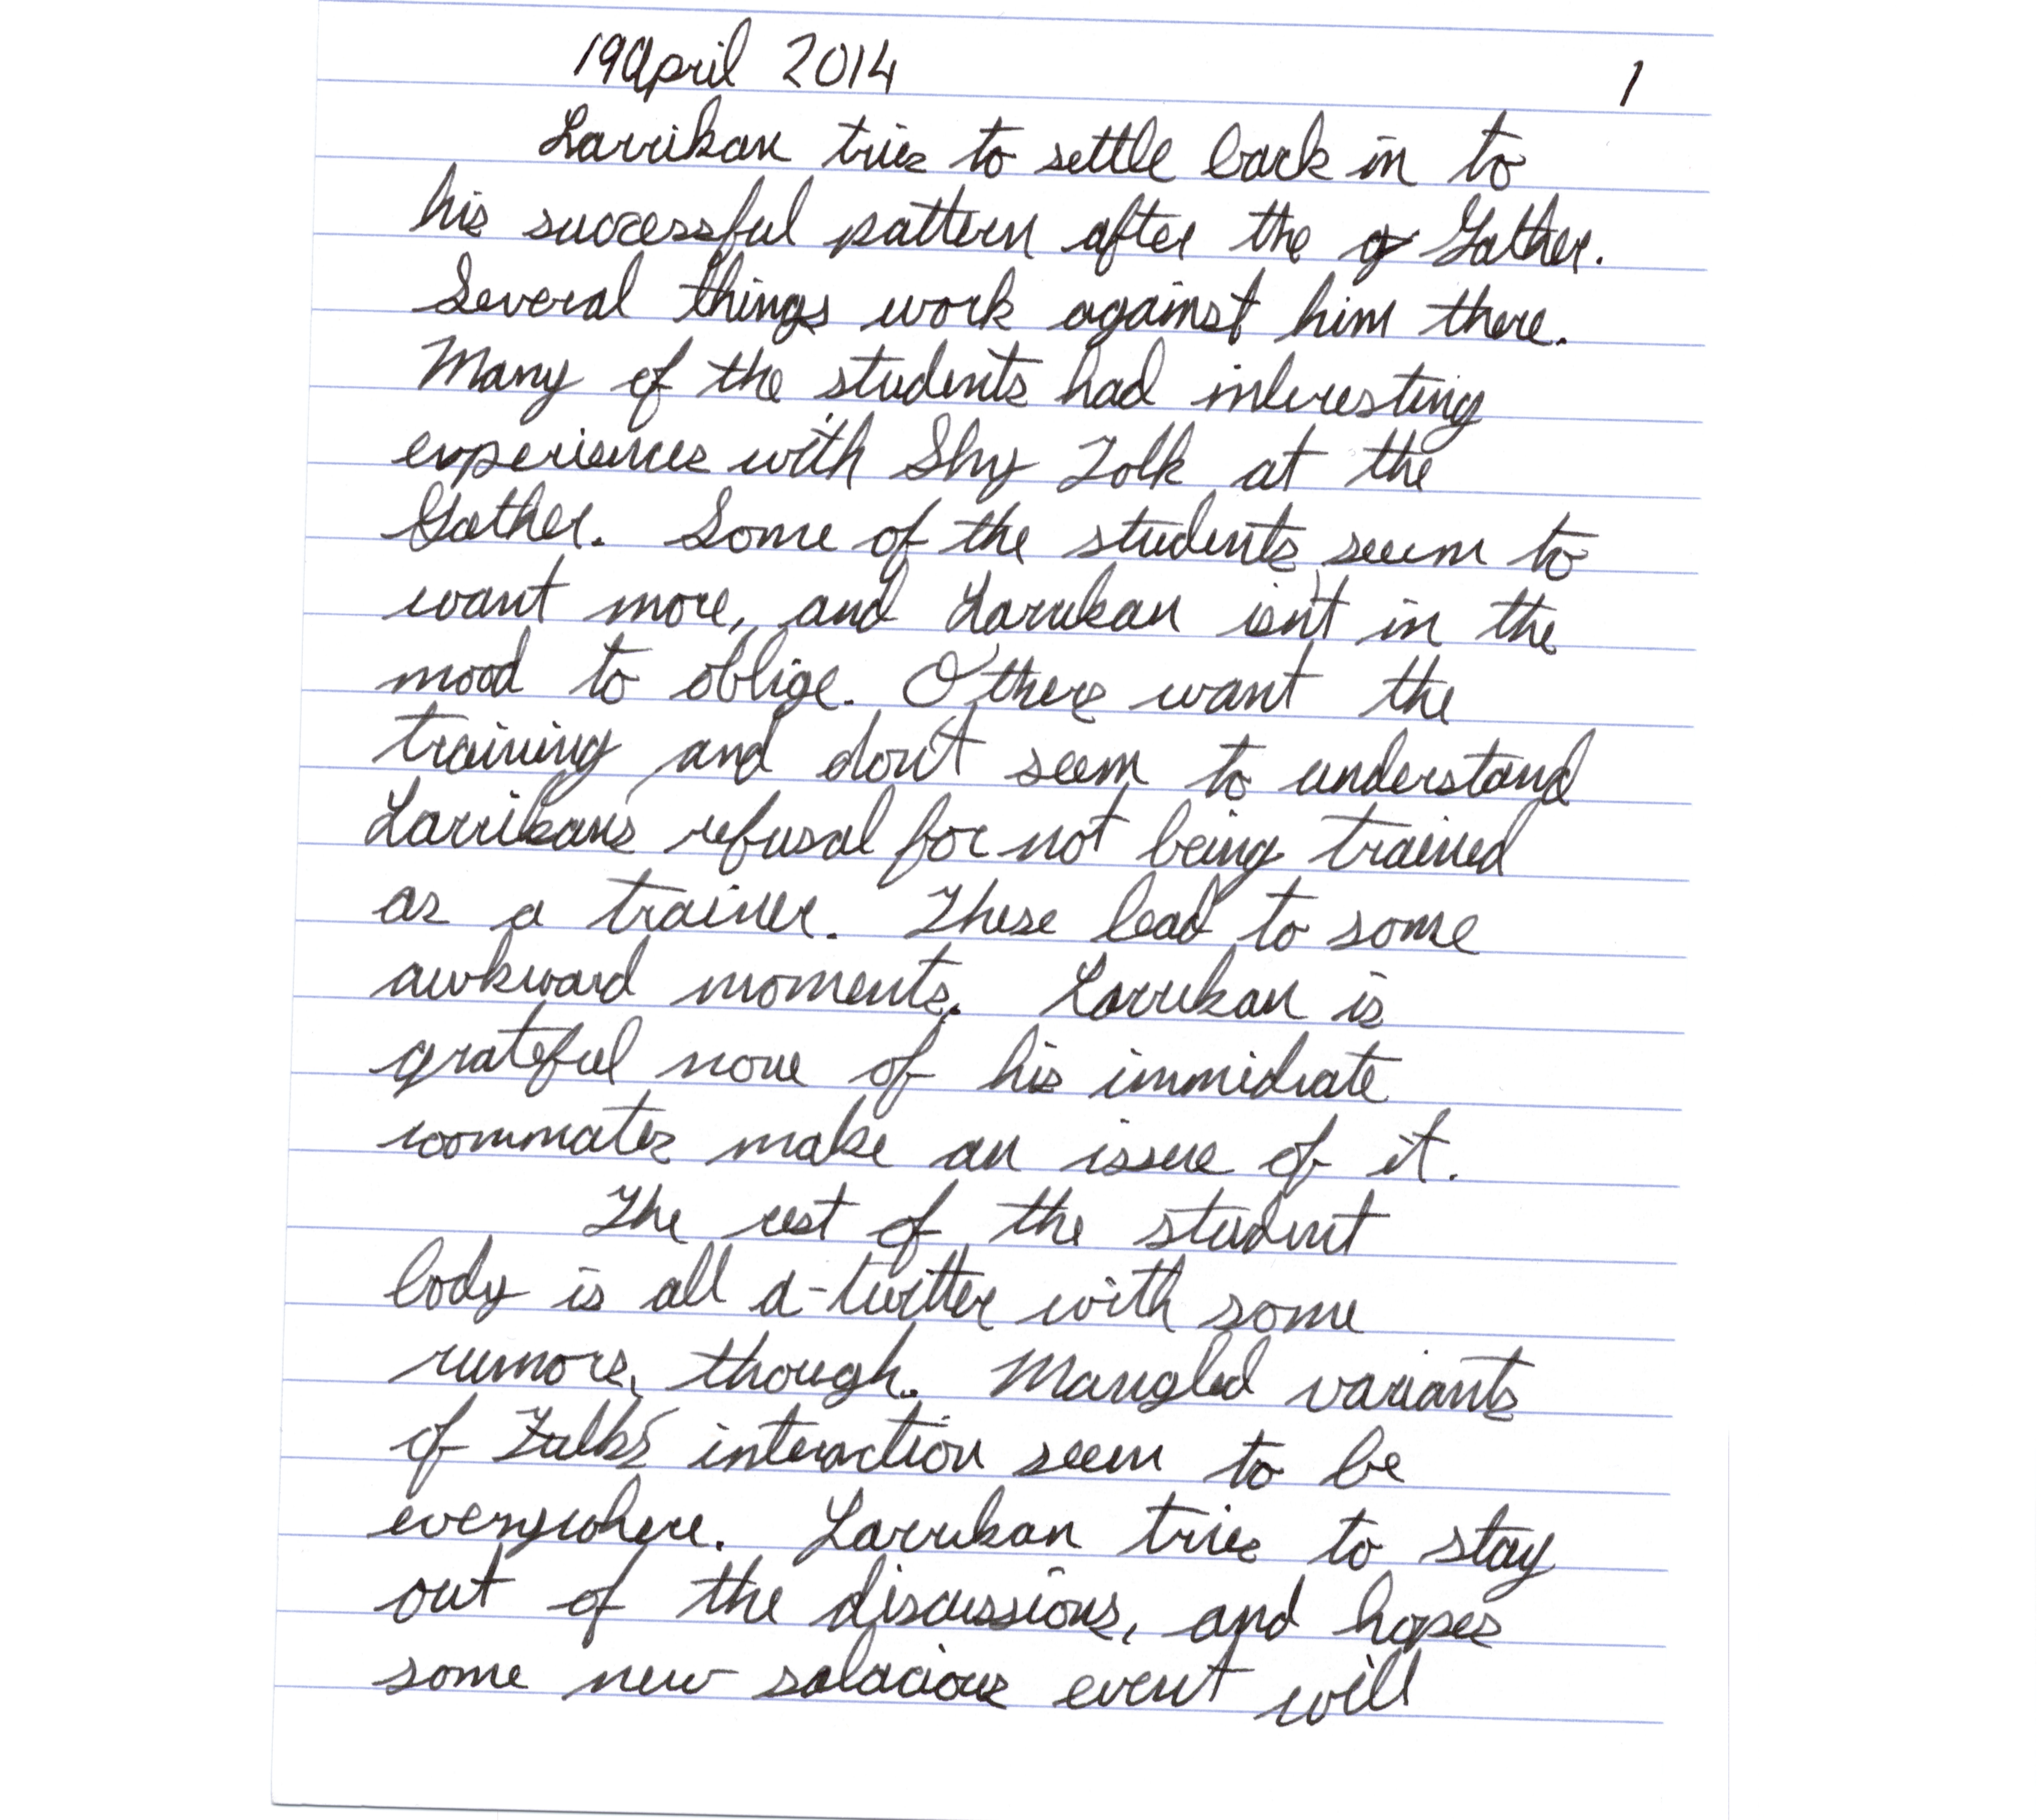 19 April 2014 1
Larrikan tries to settle back in to
his successful pattern after the g Gather.
Several things work against him there.
Many of the students had interesting
experiences with Shy Folk at the
Gather. Some of the students seem to
want more, and Larrikan isn't in the
mood to oblige. Others want the
training and don't seem to understand
Larrikan's refusal for not being trained
as a trainer. These lead to some
awkward moments. Larrikan is
grateful none of his immediate
roommates make an issue of it.
The rest of the student
body is all a-twitter with some
rumors, though. Mangled variants
of interaction seem to be
everywhere. Larrikan tries to stay
out of the discussions, and hopes
some new salacious event will